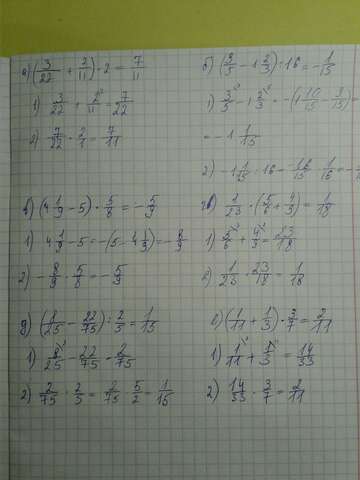 а) (3/22 + 2/11) · 2 = 7/11
1) 3/22 + 2/11 = 7/22
2) 7/22 · 2/1 = 7/11
б) (3/5 - 1 2/3) : 16 = - 1/15
1) 3/5 - 1 2/3 = -(1 10/15 - 9/15)
= -1 1/15
2) -1 1/15 : 16
в) (4 1/9 - 5) · 5/8 = - 5/9
1) 4 1/9 - 5 = -(5 - 4 1/9) = - 8/9
2) - 8/9 · 5/8 = - 5/9
г) 1/23 · (5/6 + 4/9) = 1/18
1) 5/6 + 4/9 = 23/18
2) 1/23 · 23/18 = 1/18
д) (1/25 - 22/75) : 2/5 = 1/15
1) 8/25 - 22/75 = 2/75
2) 2/75 : 2/5 = 2/75 · 5/2 = 1/15
е) (1/11 + 1/3) · 3/7 = 2/11
1) 1/11 + 1/3 = 14/33
2) 14/33 · 3/7 = 2/11